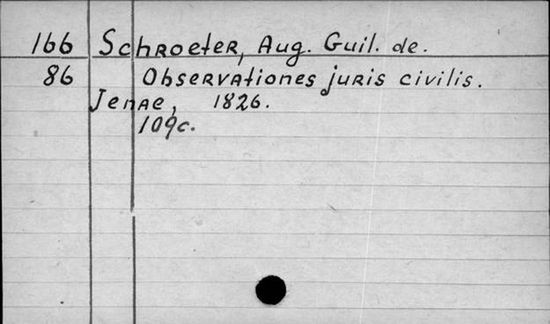 166 Schroeter, Aug. Guil. de.
86 Observationes juris civilis.
Jenae, 1826.
109c.